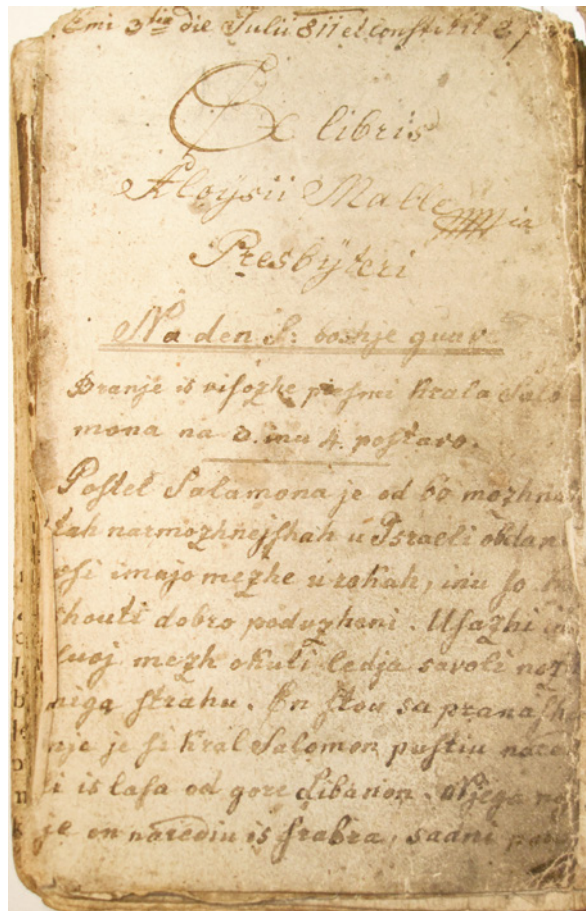 Emi 3tia die Julii 811 et constitit 2f
Ex libris
Aloysii Malle
Presbÿteri
Na den S: boshje quar
Branje is visozhe pejsmi Krala Salo
mona na 3. inu 4. postavo.
Postel Salamona je od 60 mozhn
tah narmozhnejshah u Israeli obdan
vsi imajo mezhe u rokah, inu so
shouti dobro poduzheni. Usazhi im
suoj mezh okuli ledja savoli noz
niga strahu. En stou sa pranash
nje je si Kral Salomon pustiu nare
ti is lasa od gore Libanon. Njega
je on narediu is srabra, sadni